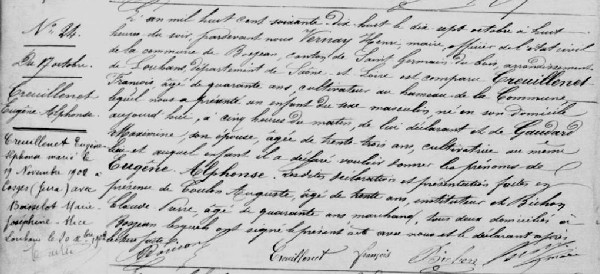 N° 24.
Du 17 octobre.
Creuillenet
Eugène Alphonse
Creuillenet Eugène
Alphonse marié le
19 Novembre 1902 à
Cosges (Jura) avec
Marie
Joséphine
Louhans le 20
L'an mil huit cent soixante dix huit le dix sept octobre à huit
heures du soir, pardevant nous Vernay Henri, maire, officier de l'état civil
de la commune de Bosjean canton de Saint Germain du bois, arrondissement
de Louhans département de Saône et Loire est comparu Creuillenet
François âgé de quarante ans, cultivateur au hameau de la Commune
lequel nous a présenté un enfant du sexe masculin, né en son domicile
aujourd'hui, à cinq heures du matin, de lui déclarant et de Gaudard
Maximine, son épouse, âgée de trente trois ans, cultivatrice au même
lieu et auquel enfant il a déclaré vouloir donner les prénoms de
Eugène Alphonse. Lesdites déclaration et présentation faites en
présence de Coulon Auguste, âgé de trente ans, instituteur et de Bichon
Claude Pierre, âgé de quarante ans, marchand, tous deux domiciliés à
Bosjean lesquels ont signé le présent acte avec nous et le déclarant après
lecture faite.
Creuillenet françois